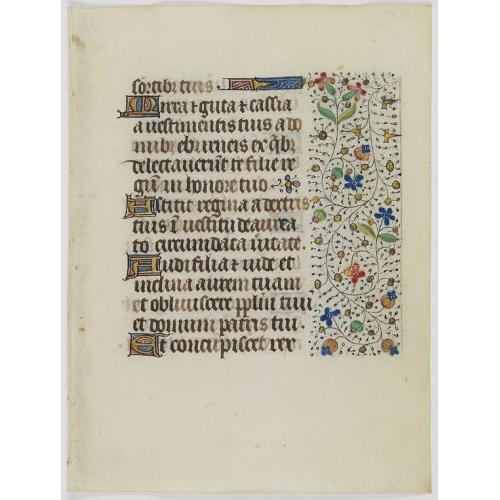 sortibꝫ tuis
Mirra ⁊ guta ⁊ cassia
a uestimentis tuis a do
mibꝫ eburneis ex qͥbꝫ
delectauerūt te filie re
gū in honore tuo
Astitit regina a dextris
tuis ī uestitu deaura
to circumdata ūitate.
Audi filia ⁊ uide et
inclina aurem tuam
et obliuiscere pplm̄ tuū
et domum patris tui.
Et concupiscet rex